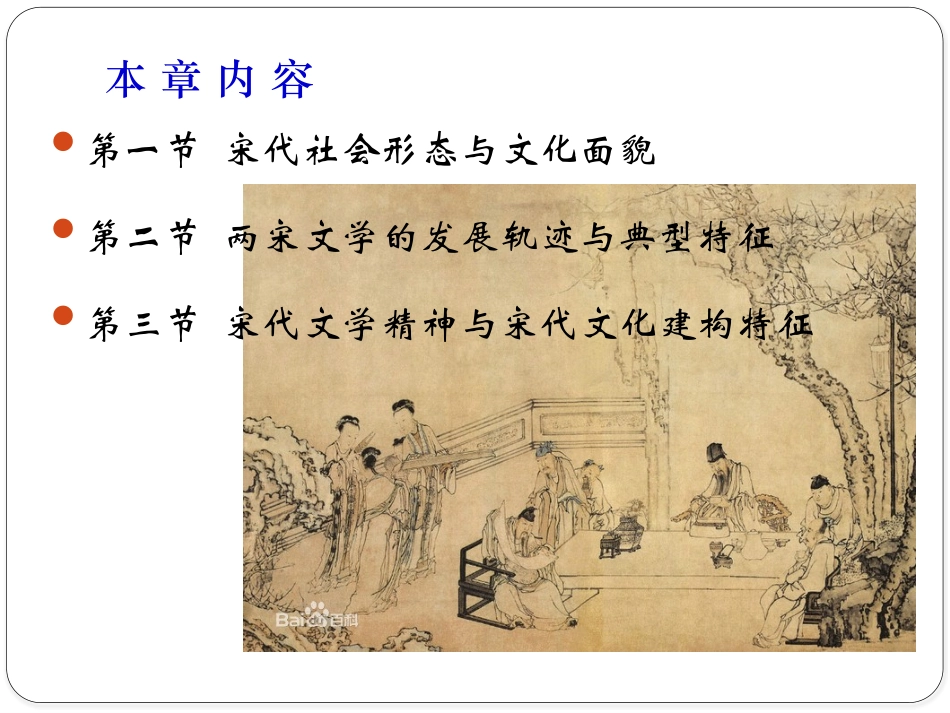 本章内容
第一节 宋代社会形态与文化面貌
第二节 两宋文学的发展轨迹与典型特征
第三节 宋代文学精神与宋代文化建构特征
Bai百科